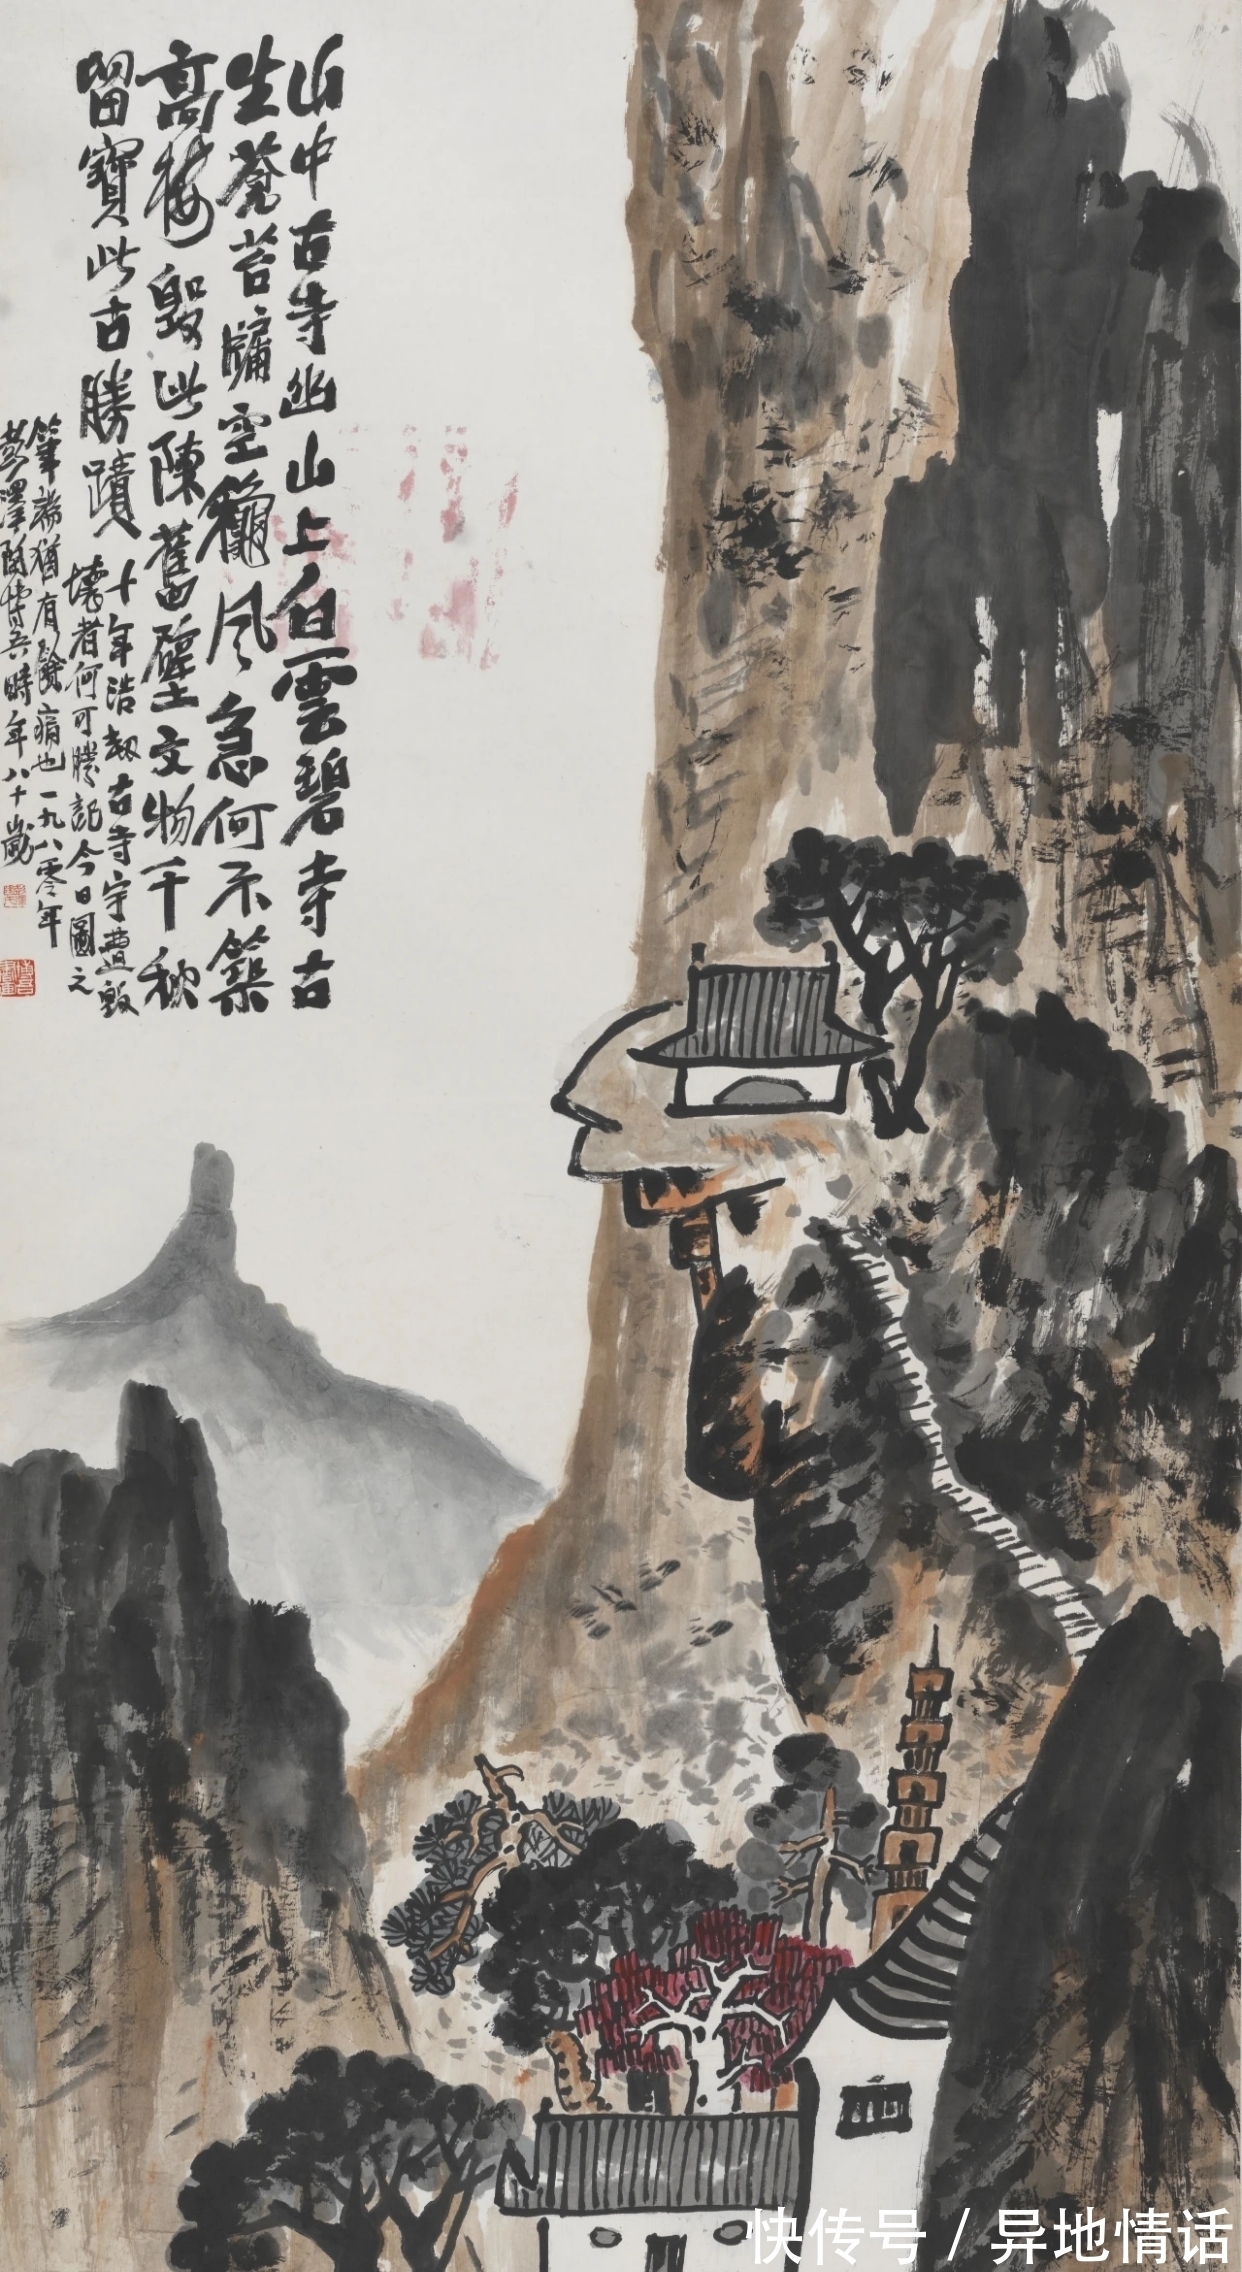 山中古寺幽山上白雲碧寺古
生蒼苔牖空龝風急何不築
高樓毀此陳舊壁文物千秋
留寶此古勝蹟
十年浩劫古寺宇遭毀
壞者何可勝記今日圖之
筆端猶有餘痛也一九八零年
彭澤陶博吾時年八十歲
快传号 / 异地情话